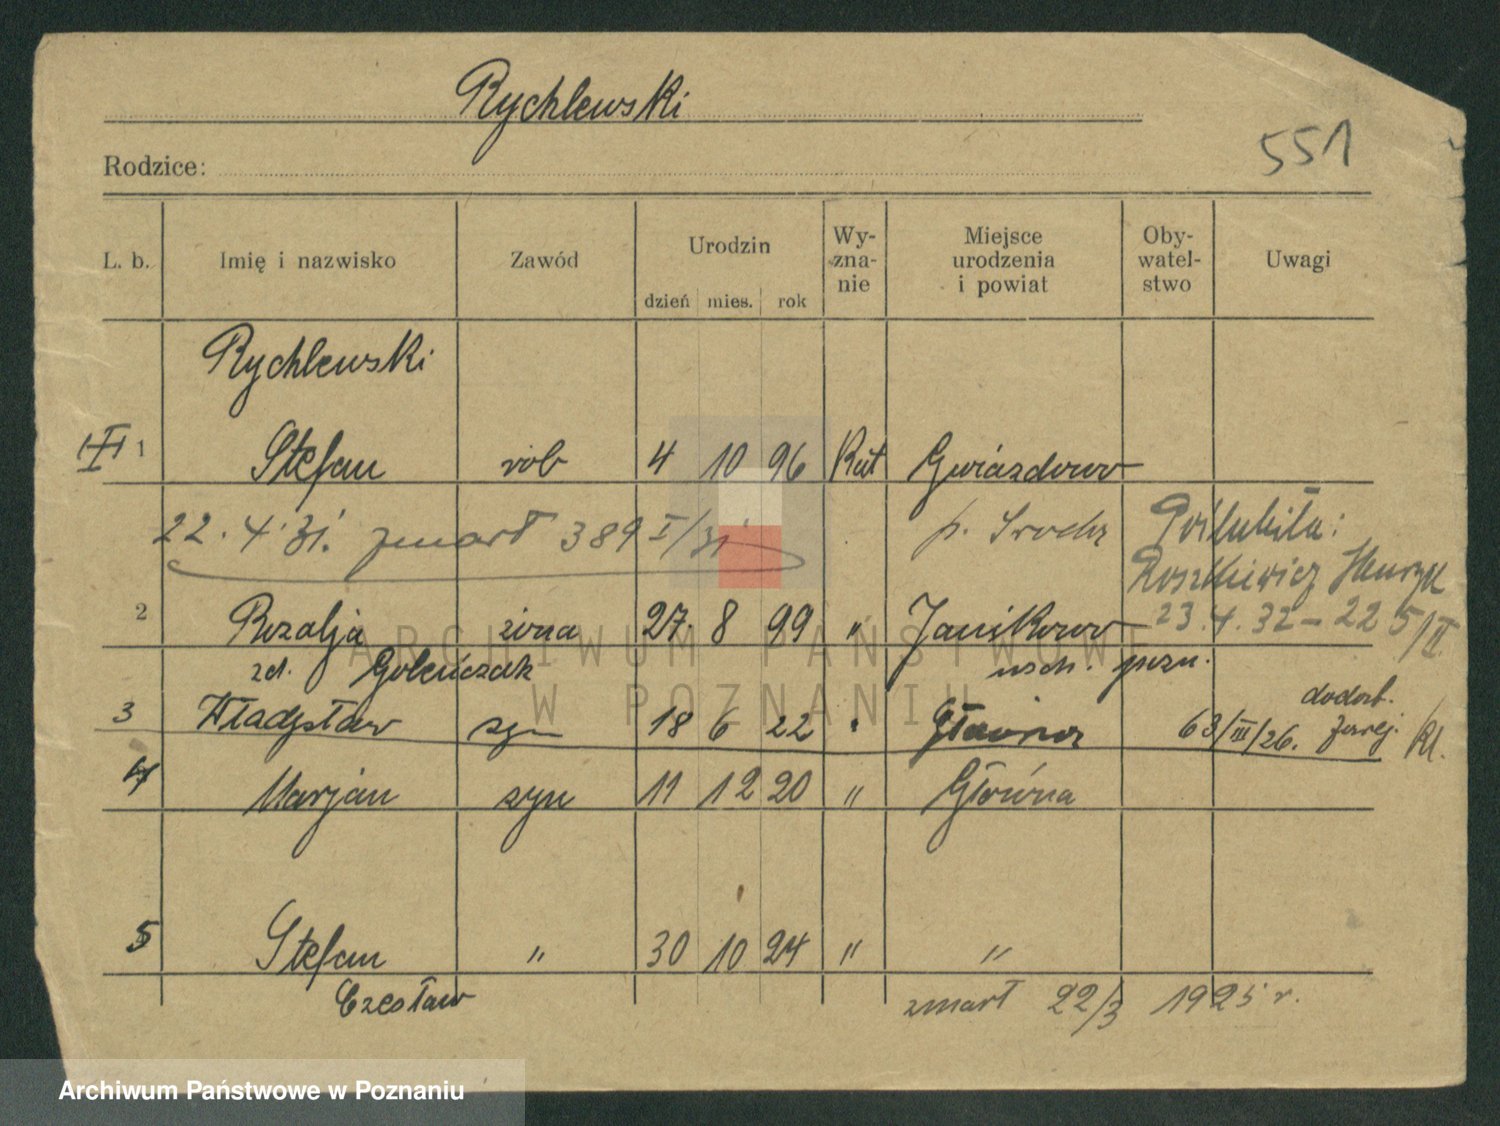 Rychlewski
551
Rodzice:
L. b. Imię i nazwisko Zawód Urodzin dzień mies. rok Wy-zna-nie Miejsce urodzenia i powiat Oby-watel-stwo Uwagi
Rychlewski
1 Stefan rob 4 10 96 Kat Gwiazdowo
22.4.31. zmarł 389 I/31 p. Środa Poślubiła:
Roszkiewicz Henryk
2 Rozalja żona 27. 8 99 " Janikowo 23.4.32 – 22 5/II
zd. Goleńczak wsch. pozn.
3 Władysław syn 18 6 22 " Główna 63/III/26. dodat. zarej. Kl.
4 Marjan syn 11 12 20 " Główna
5 Stefan " 30 10 24 " "
Czesław zmarł 22/3 1925 r.
ARCHIWUM PAŃSTWOWE
W POZNANIU
Archiwum Państwowe w Poznaniu